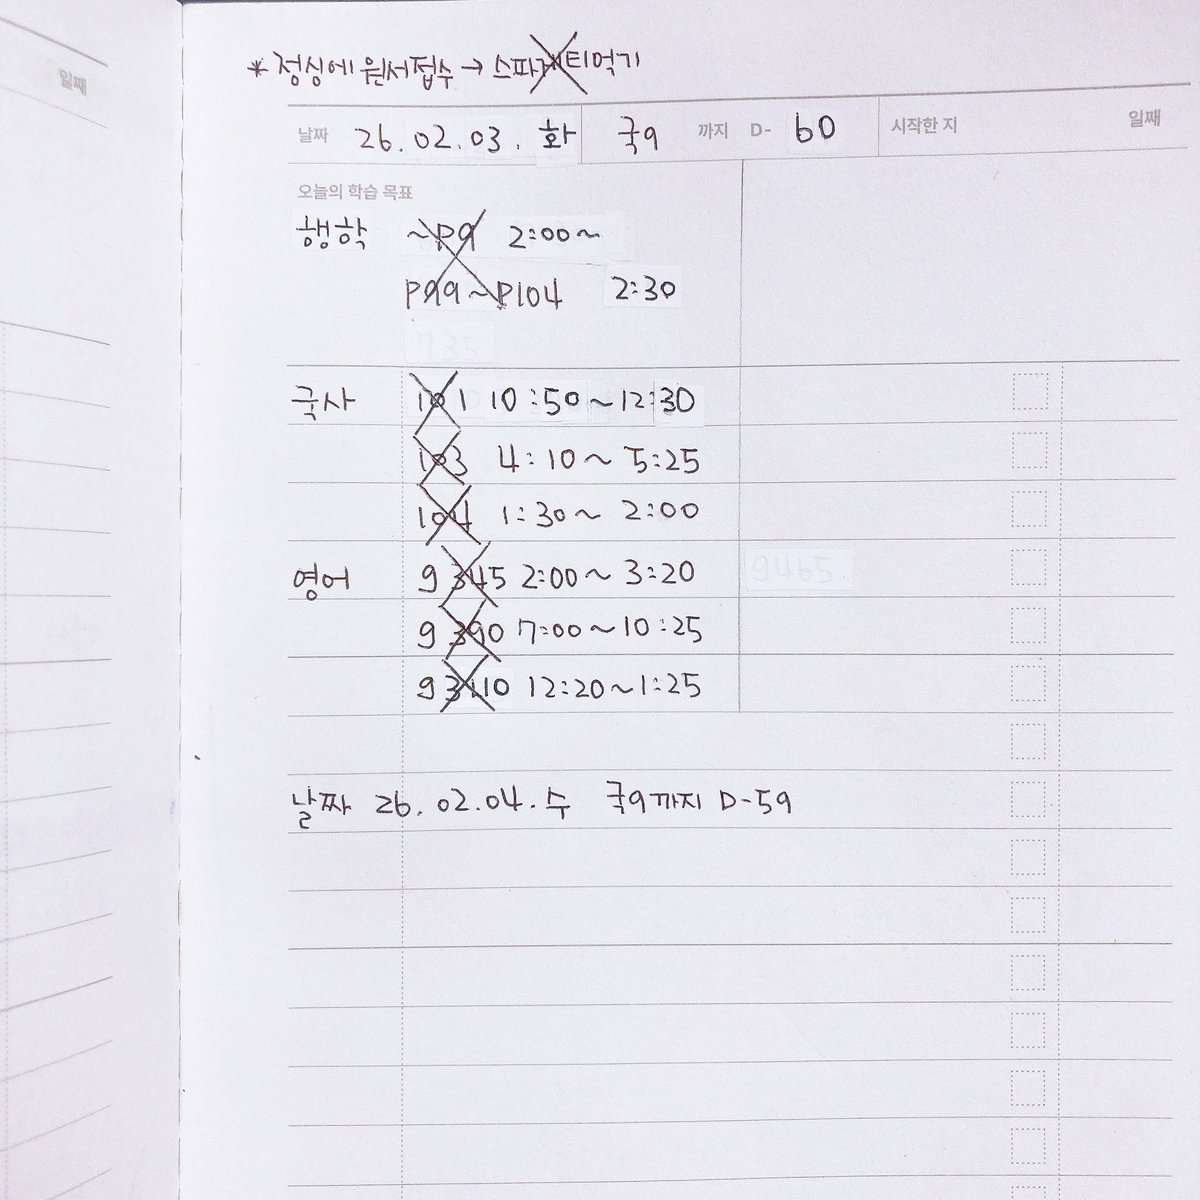 일째
* 정싱에 원서접수 → 스파게티먹기
날짜 26.02.03. 화 국9 까지 D- 60 시작한 지 일째
오늘의 학습 목표
행학 ~P9 2:00~
P99~P104 2:30
735
국사 101 10:50~12:30
103 4:10~5:25
104 1:30~2:00
영어 9345 2:00~3:20 9465
9390 7:00~10:25
93110 12:20~1:25
날짜 26.02.04. 수 국9까지 D-59